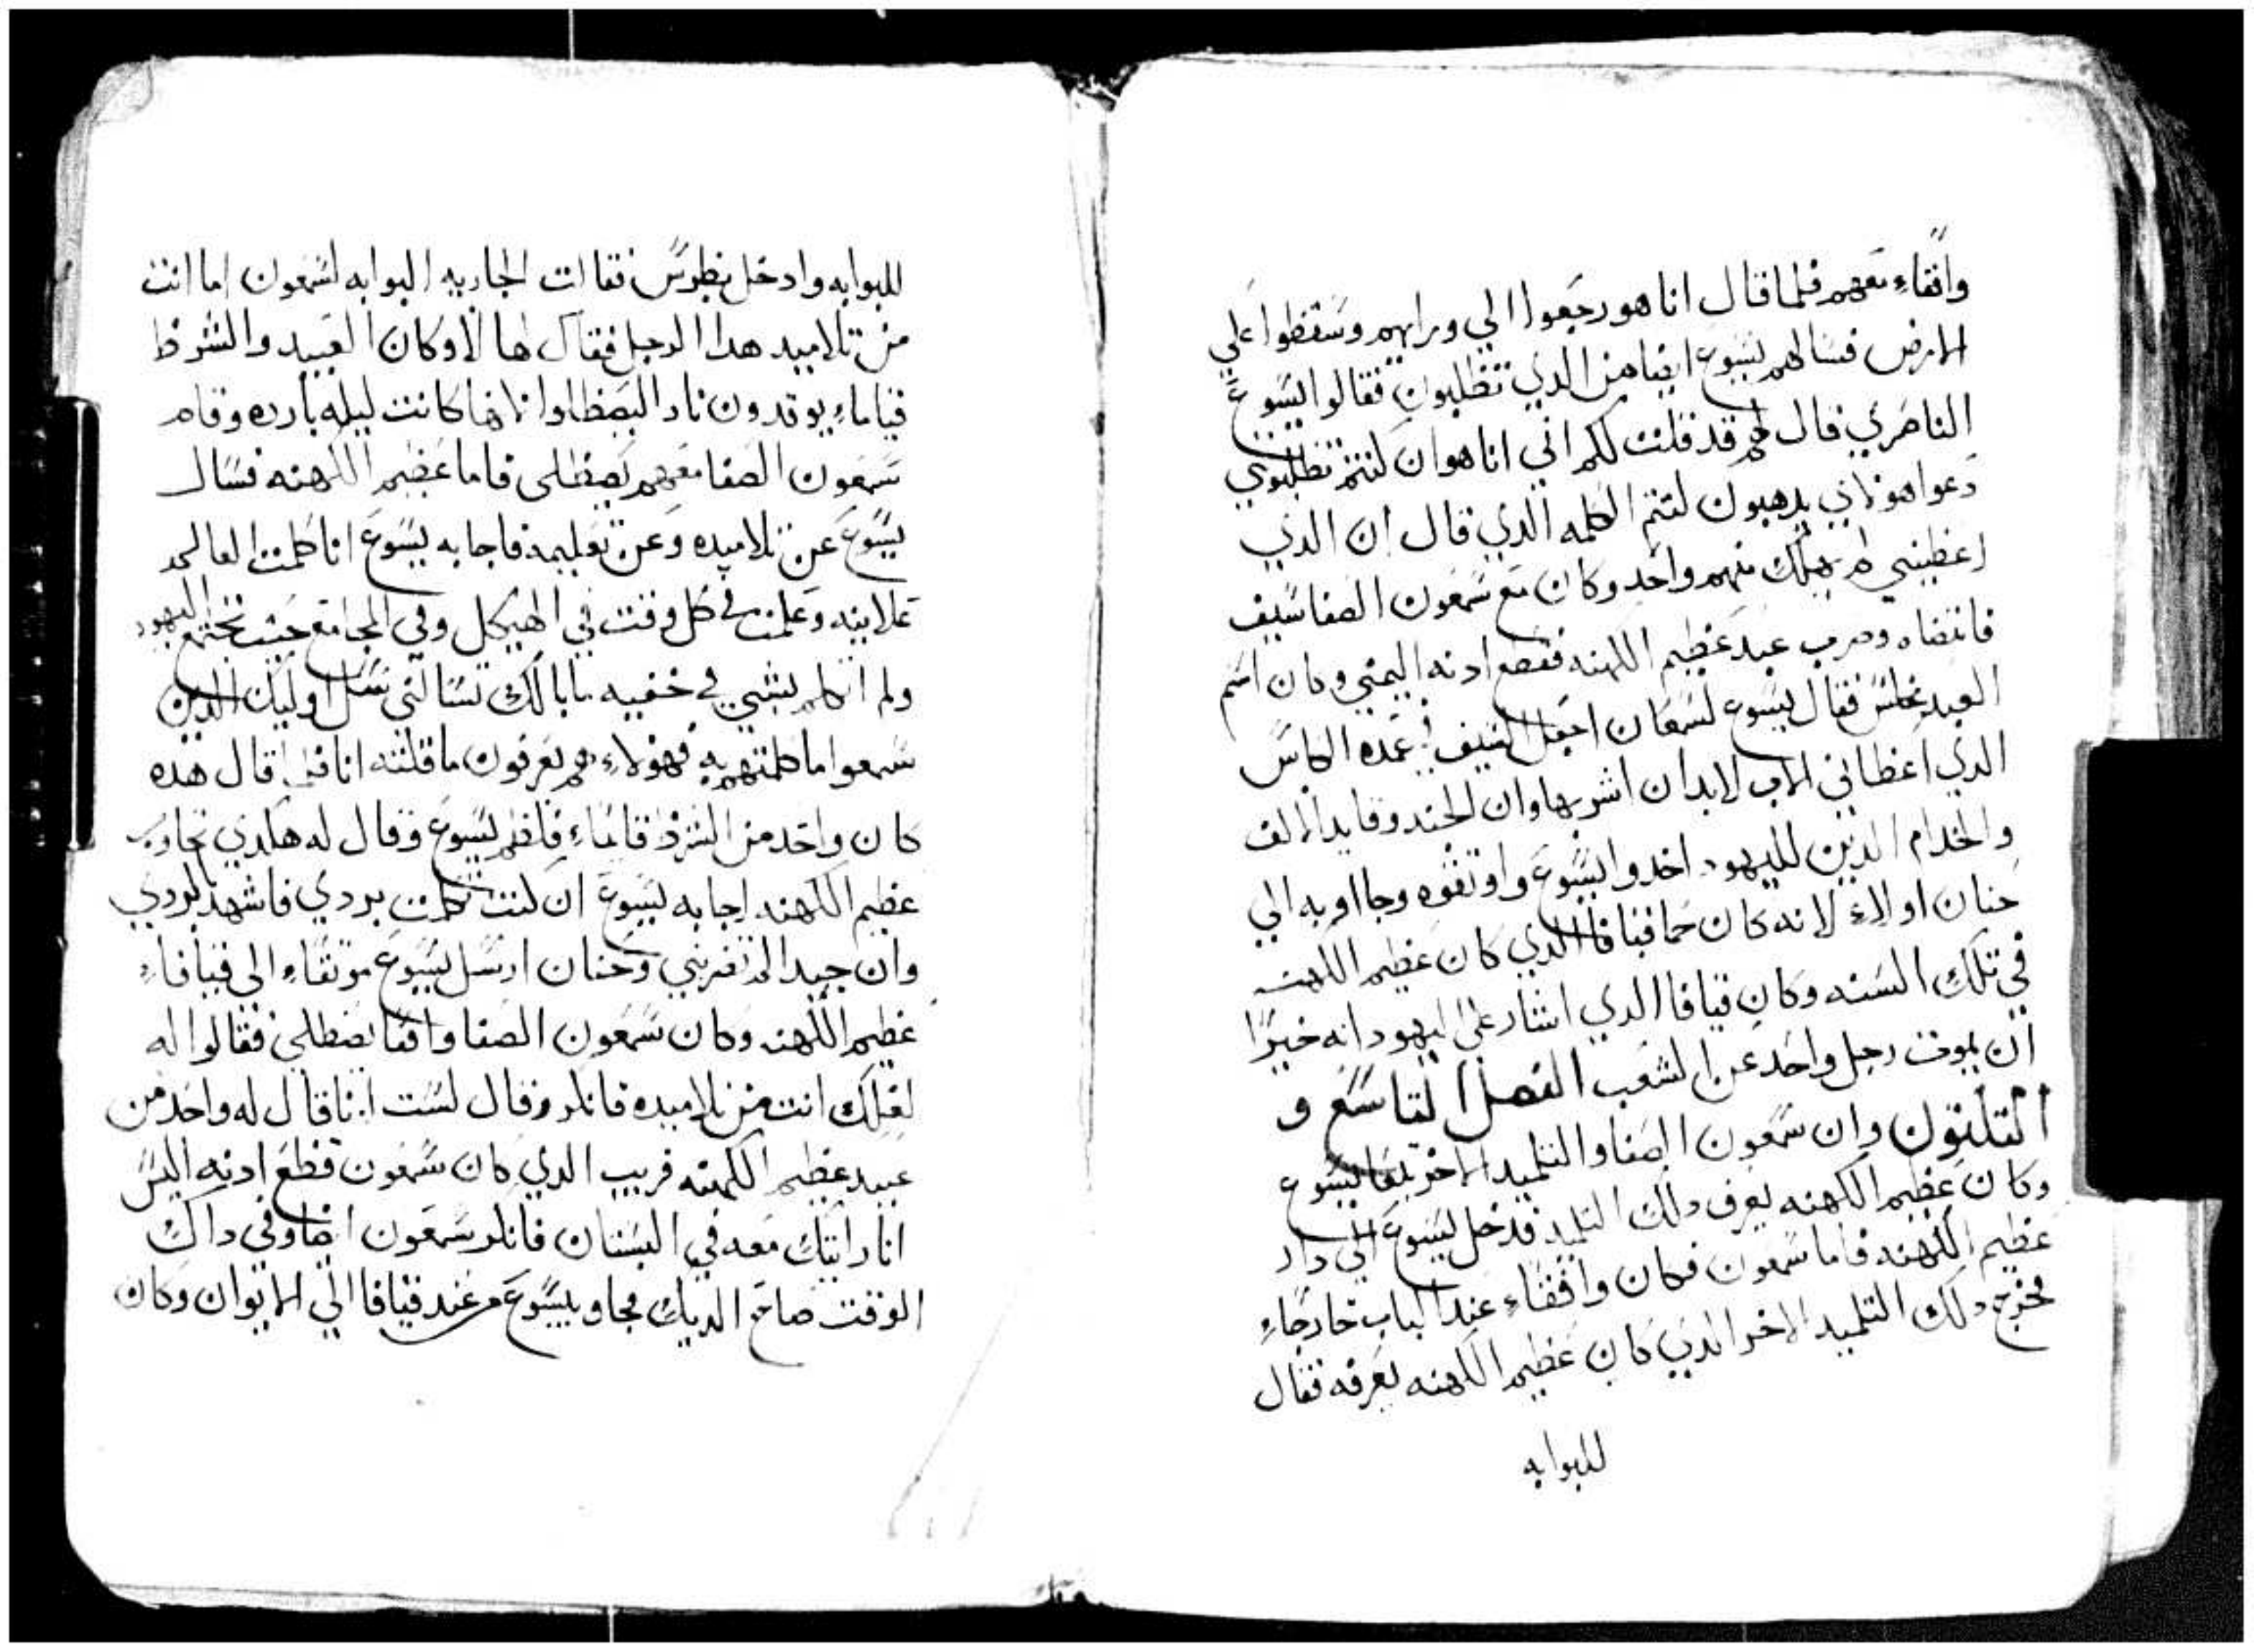 واقفاءِ معهم فلما قال انا هو رجعوا الي ورايهم وسقطوا علي
الارض فسالهم يسوع ايضا من الدي تطلبون فقالوا ايسوع
الناصري قال لهم قد قلت لكم اني انا هو ان كنتم تطلبوني
دعوا هولاني يدهبون لتتم الكلمه الدي قال ان الدي
اعطيتني لم يهلك منهم واحد وكان مع شمعون الصفا سيف
فانتضاه وضرب عبد عظيم الكهنه فقطع ادنه اليمني وكان اسم
العبد فقال يسوع لشمعان اجعل السيف في غمده الكاس
الدي اعطاني الاب لابد ان اشربها وان الجند وقايد الالف
والخدام الدين لليهود اخدوا ايسوع واوتقوه وجااو به الي
حنان اولاءِ لانه كان حما قيافا الدي كان عظيم الكهنه
في تلك السنه وكان قيافا الدي اشار على اليهود انه خيرًا
ان يموت رجل واحد عن الشعب الفصل التاسع و
التلتون وان شمعون الصفا والتلميد الاخر تبعا يسوع
وكان عظيم الكهنه يعرف دلك التلميد فدخل يسوع الي دار
عظيم الكهنه فاما شمعون فكان واقفاءِ عند الباب خارجاءِ
فخرج دلك التلميد الاخر الدي كان عظيم الكهنه يعرفه فقال
للبوابه
للبوابه وادخل بطرس فقالت الجاريه البوابه لشمعون اما انت
من تلاميد هدا الرجل فقال لها لا وكان العبيد والشرط
قياماءِ يوقدون نار اليصطلوا لانها كانت ليله بارده وقام
شمعون الصفا معهم يصطلى فاما عظيم الكهنه فسال
يسوع عن تلاميده وعن تعليمه فاجابه يسوع انا كلمت العالم
علانيه وعلمت في كل وقت في الهيكل وفي المجامع حيت تجتمع اليهود
ولم اتكلم بشي في خفيه ما بالك تسالني سل اوليك الدين
سمعوا ما كلمتهم به فهولاءِ هم يعرفون ما قلته انا فلما قال هده
كان واحد من الشرط قايماءِ فلطم يسوع وقال له هكدي تجاوب
عظيم الكهنه اجابه يسوع ان كنت تكلمت بردي فاشهد بالردي
وان جيدا لم تضربني وحنان ارسل يسوع موتقاءِ الى قيافاءِ
عظيم الكهنه وكان شمعون الصفا واقفا يصطلي فقالوا له
لعلك انت من تلاميده فانكر وقال لست انا قال له واحد من
عبيد عظيم الكهنه قريب الدي كان شمعون قطع ادنه اليس
انا رايتك معه في البستان فانكر شمعون ايضا وفي داك
الوقت صاح الديك فجاو بيسوع من عند قيافا الي الايوان وكان